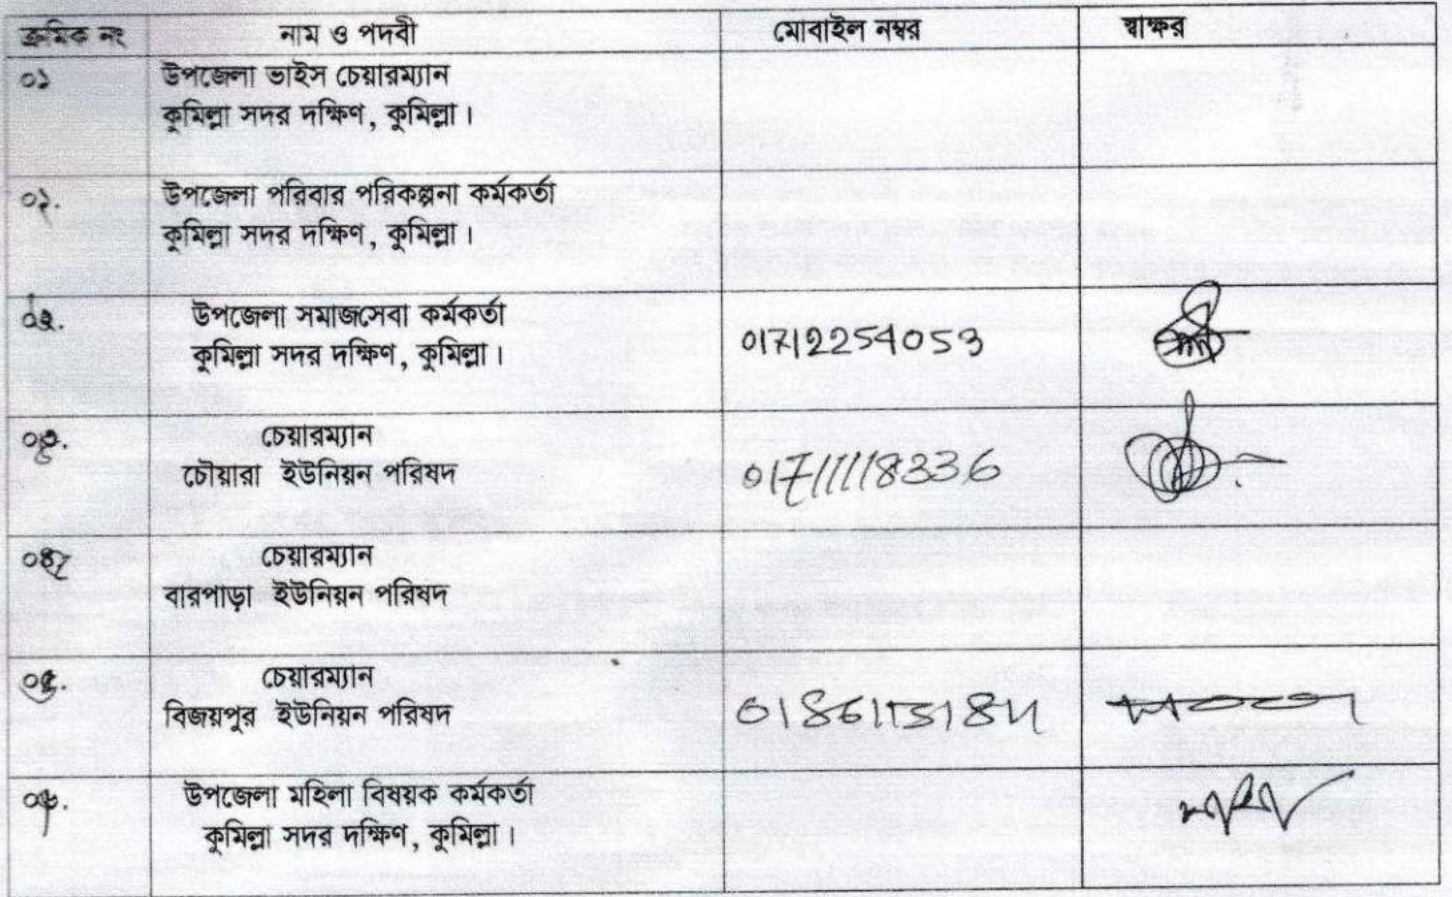 ক্রমিক নং নাম ও পদবী মোবাইল নম্বর স্বাক্ষর
০১ উপজেলা ভাইস চেয়ারম্যান
কুমিল্লা সদর দক্ষিণ, কুমিল্লা।
০২. উপজেলা পরিবার পরিকল্পনা কর্মকর্তা
কুমিল্লা সদর দক্ষিণ, কুমিল্লা।
উপজেলা সমাজসেবা কর্মকর্তা
কুমিল্লা সদর দক্ষিণ, কুমিল্লা। 01712254053
চেয়ারম্যান
চৌয়ারা ইউনিয়ন পরিষদ 01711118336
চেয়ারম্যান
বারপাড়া ইউনিয়ন পরিষদ
চেয়ারম্যান
বিজয়পুর ইউনিয়ন পরিষদ
উপজেলা মহিলা বিষয়ক কর্মকর্তা
কুমিল্লা সদর দক্ষিণ, কুমিল্লা।